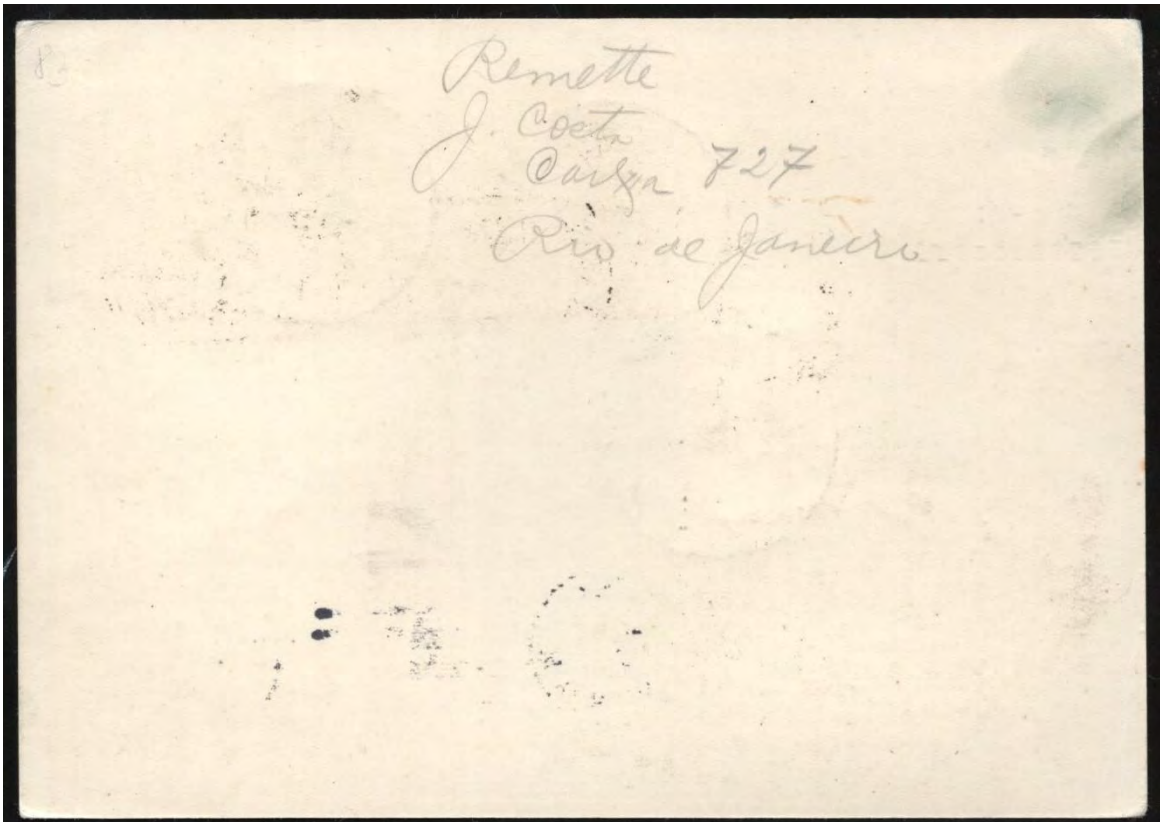 Remette
J. Costa
Caixa 727
Rio de Janeiro